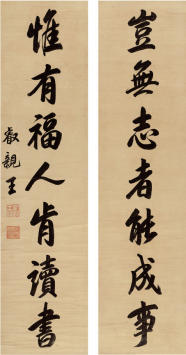 豈無志者能成事
惟有福人肯讀書
叡親王